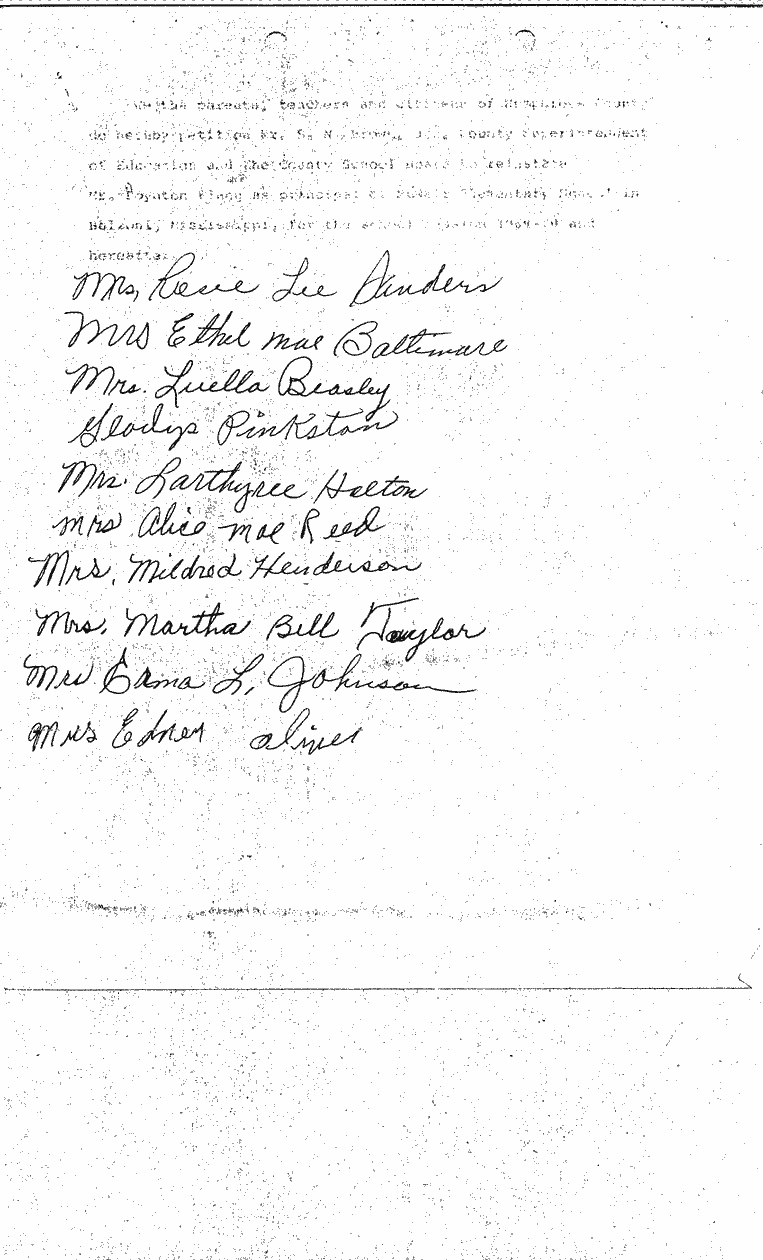 We the parents, teachers and citizens of Humphreys County
do hereby petition Mr. Brown, County Superintendent
of Education and the County School Board to reinstate
Mr. as principal Elementary School in
Belzoni, Mississippi, for the school session 1969-70 and
hereafter.
Mrs. Rosie Lee Sanders
Mrs Ethel mae Baltimore
Mrs. Luella Beasley
Gladys Pinkston
Mrs. Larthyree Halton
mrs Alice mae Reed
Mrs. Mildred Henderson
Mrs. Martha Bell Taylor
Mrs Erma L. Johnson
Mrs Edner oliver